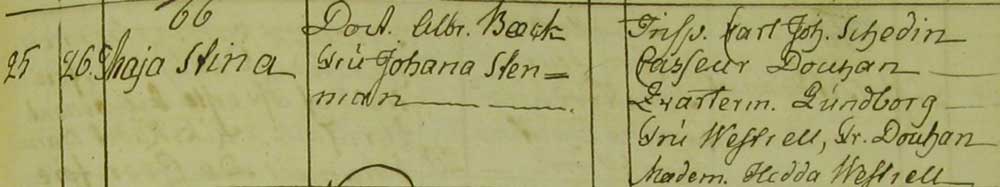 66
25 26 Maja Stina
Doct. Albr. Boeck
Fru Johana Sten=
man
Insp. Carl Joh. Schedin
Casseur Douhan
Qvarterm. Lundborg
Fru Westrell, Fr. Douhan
Madem. Hedda Westrell